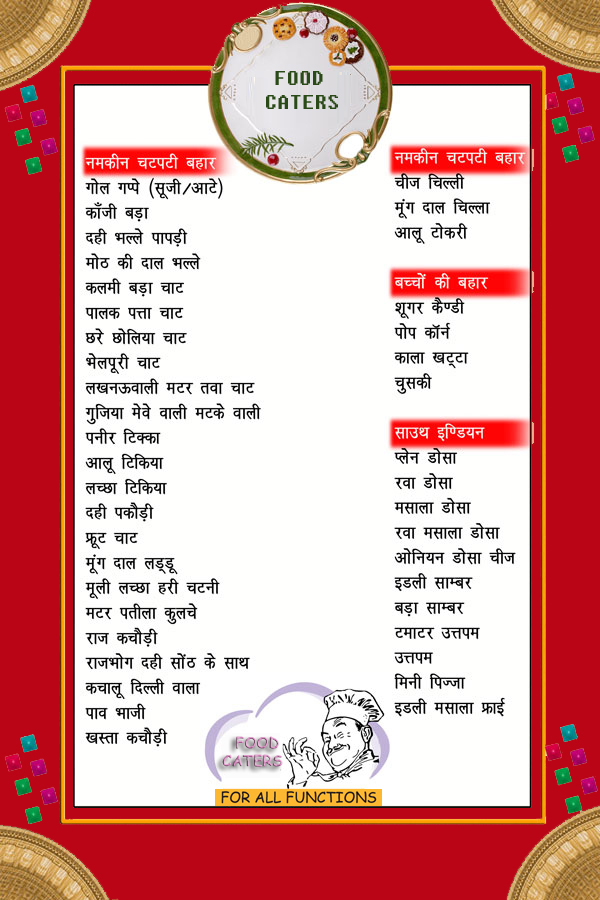 FOOD
CATERS
नमकीन चटपटी बहार
गोल गप्पे (सूजी/आटे)
काँजी बड़ा
दही भल्ले पापड़ी
मोठ की दाल भल्ले
कलमी बड़ा चाट
पालक पत्ता चाट
छरे छोलिया चाट
भेलपूरी चाट
लखनऊवाली मटर तवा चाट
गुजिया मेवे वाली मटके वाली
पनीर टिक्का
आलू टिकिया
लच्छा टिकिया
दही पकौड़ी
फ्रूट चाट
मूंग दाल लड्डू
मूली लच्छा हरी चटनी
मटर पतीला कुलचे
राज कचौड़ी
राजभोग दही सोंठ के साथ
कचालू दिल्ली वाला
पाव भाजी
खस्ता कचौड़ी
नमकीन चटपटी बहार
चीज चिल्ली
मूंग दाल चिल्ला
आलू टोकरी
बच्चों की बहार
शूगर कैण्डी
पोप कॉर्न
काला खट्टा
चुसकी
साउथ इण्डियन
प्लेन डोसा
रवा डोसा
मसाला डोसा
रवा मसाला डोसा
ओनियन डोसा चीज
इडली साम्बर
बड़ा साम्बर
टमाटर उत्तपम
उत्तपम
मिनी पिज्जा
इडली मसाला फ्राई
FOOD
CATERS
FOR ALL FUNCTIONS